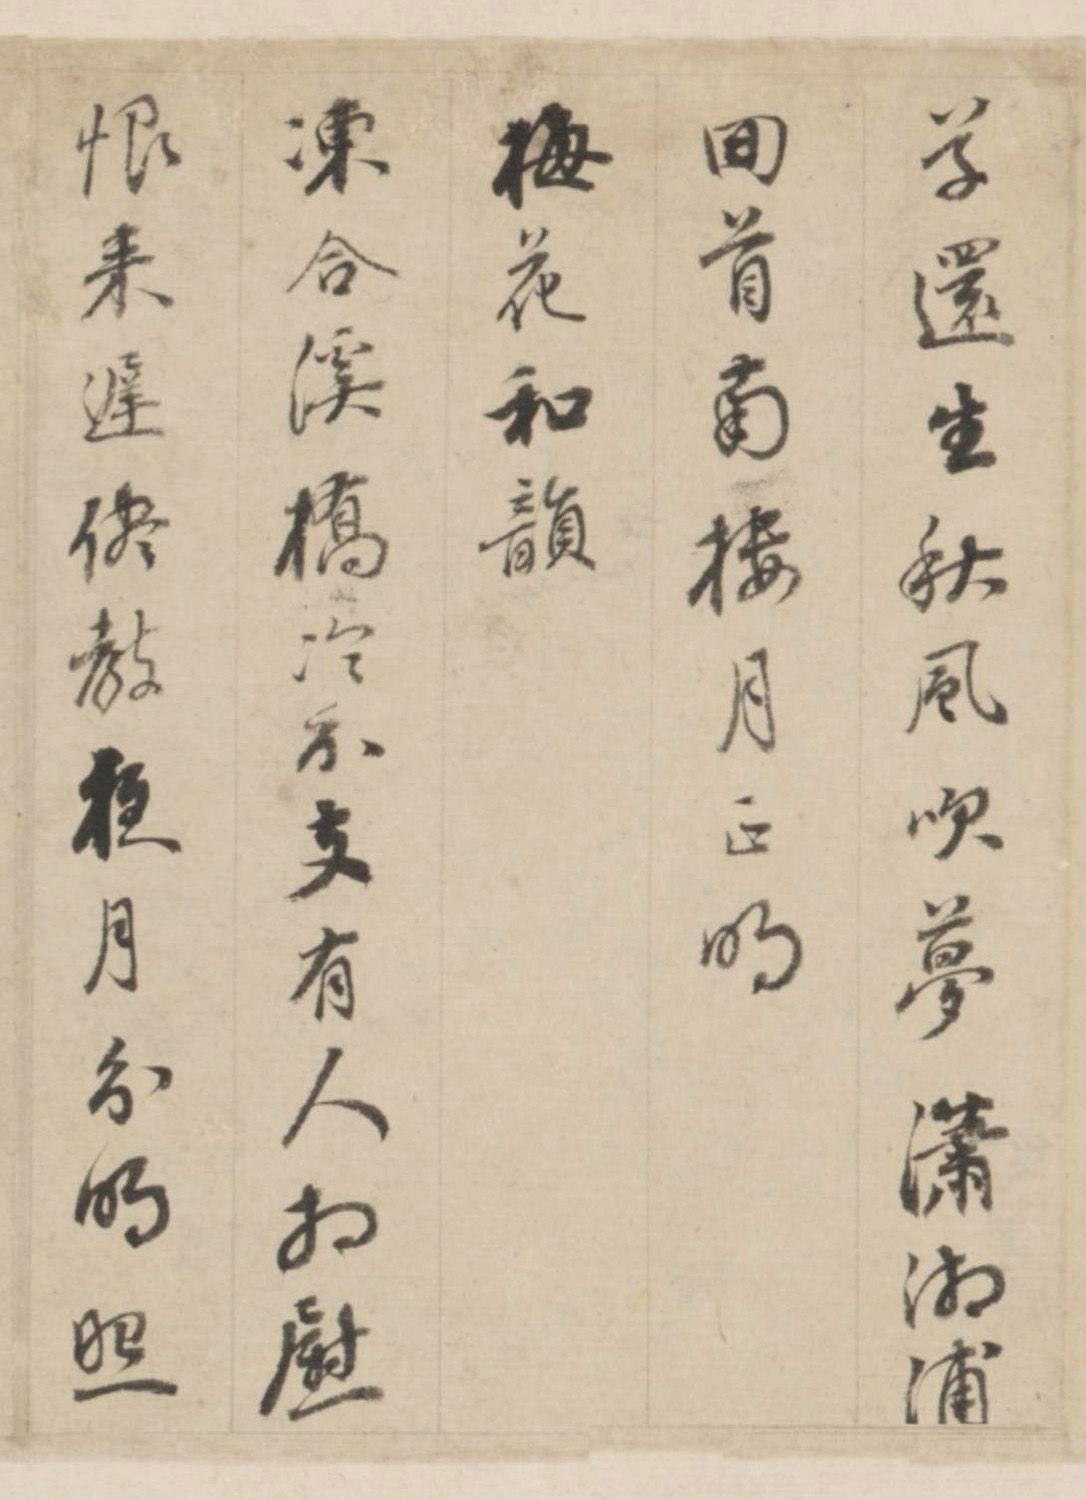 草還生秋風吹夢瀟湘浦
回首南樓月正明
梅花和韻
凍合溪橋冷不支有人相慰
恨來遲儘教夜月分明照